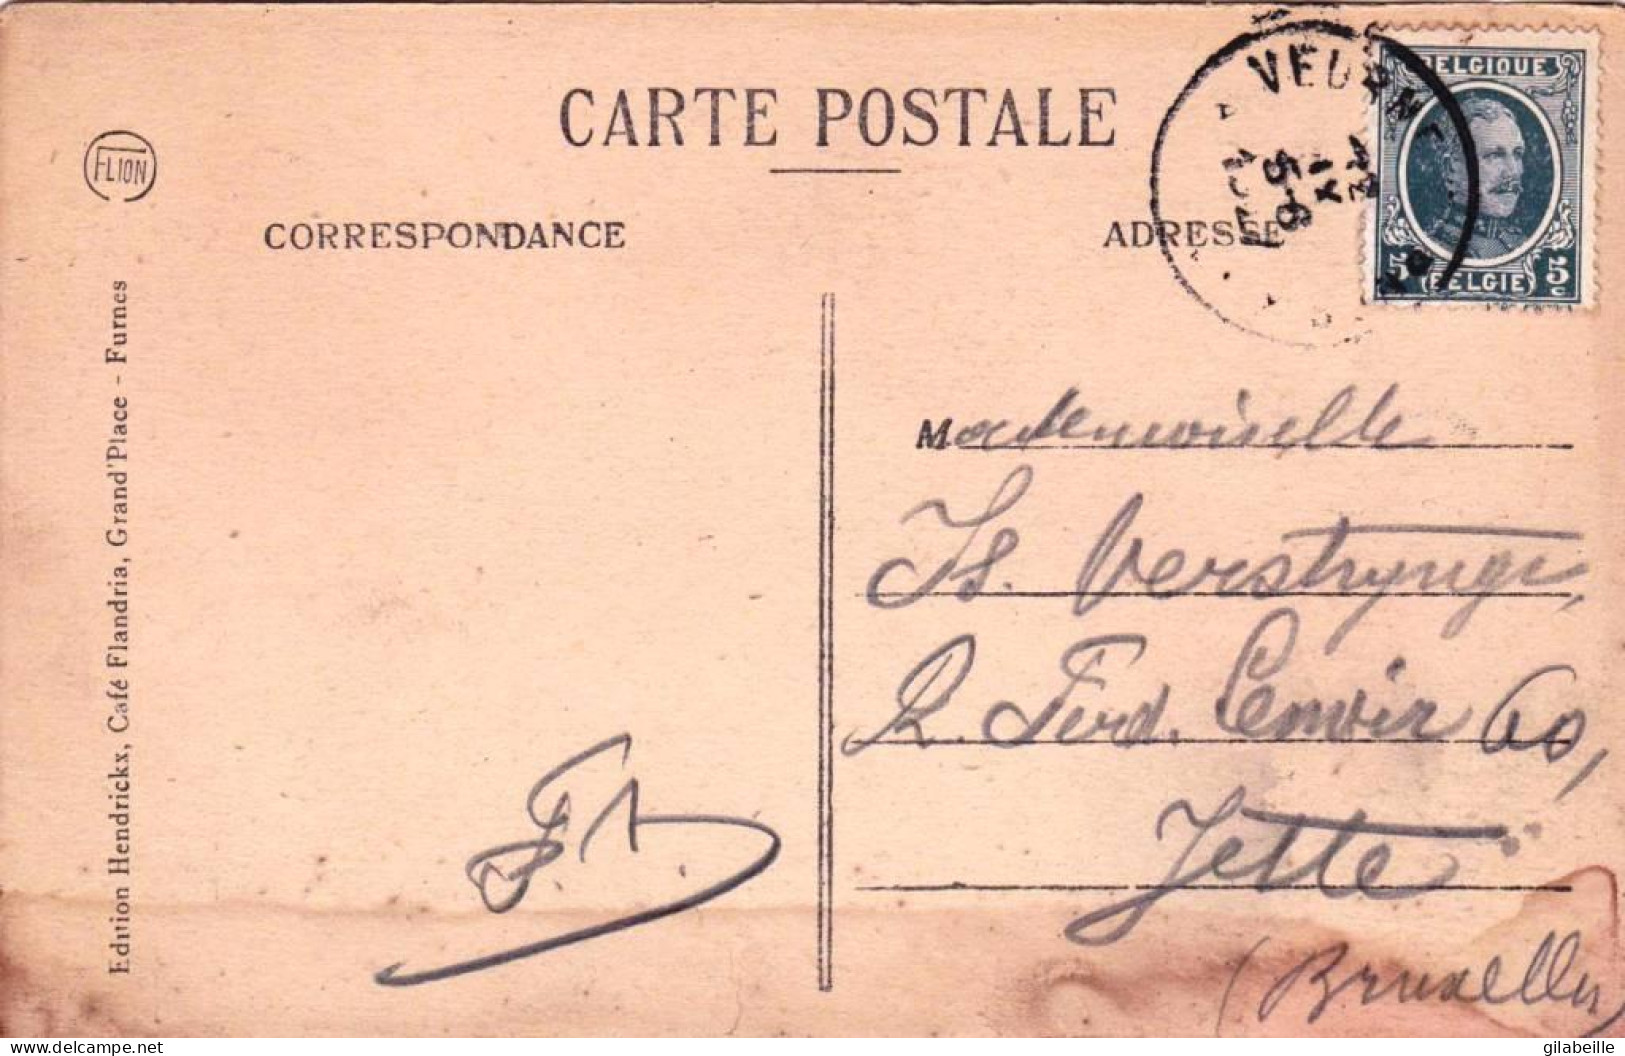 CARTE POSTALE
FLION
CORRESPONDANCE
ADRESSE
VEURNE
5-6
BELGIQUE
5 BELGIE 5
c
Edition Hendrickx, Café Flandria, Grand'Place - Furnes
Mademoiselle
Is. Verstrynge,
R. Ferd. Lenoir 60,
Jette
(Bruxelles)
delcampe.net
gilabeille